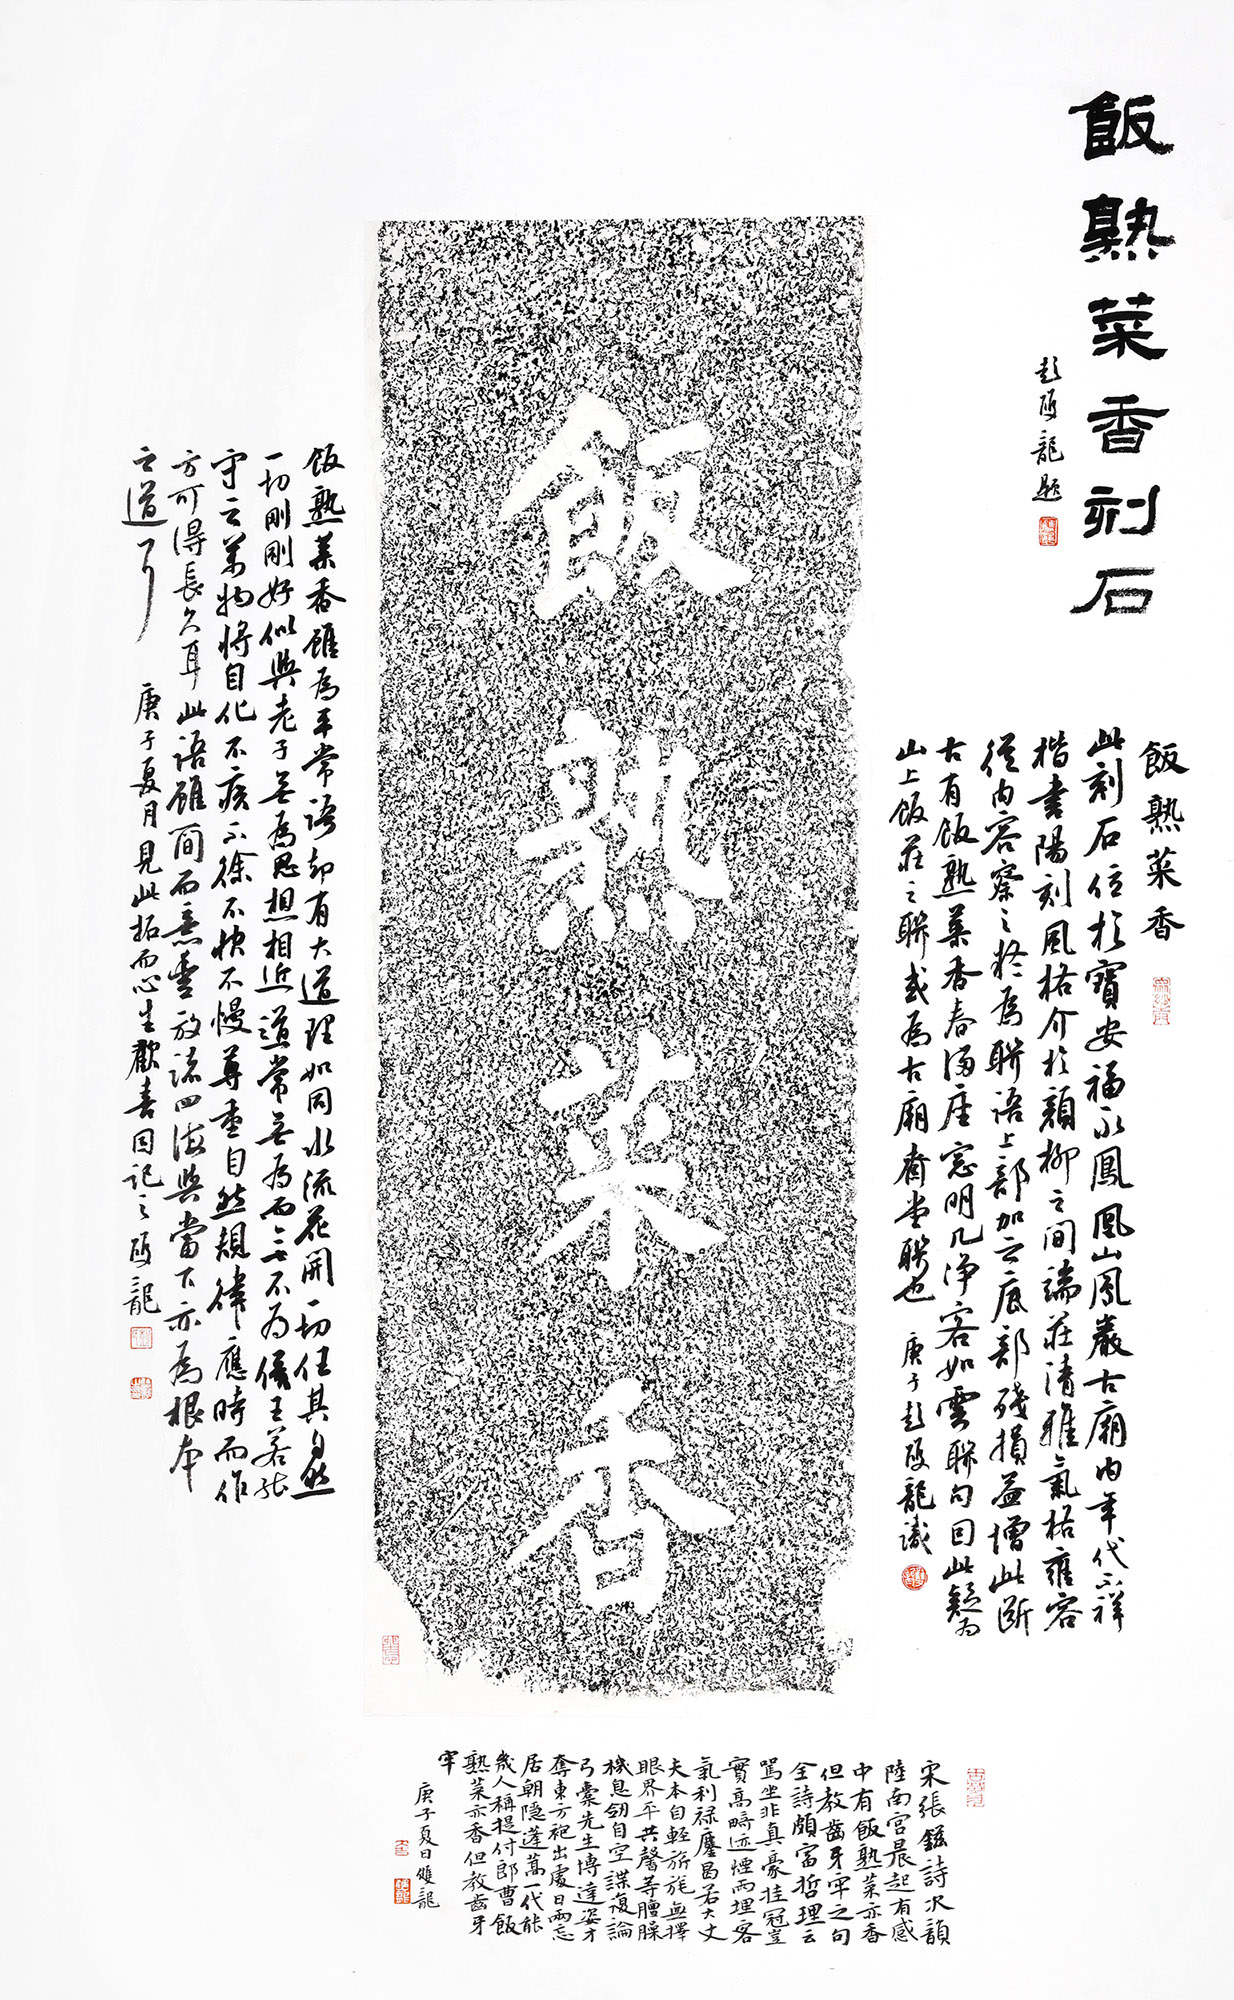 飯熟菜香刻石
彭雙龍題
飯熟菜香
此刻石位於寶安福永鳳凰山鳳巖古廟內年代不祥
楷書陽刻風格介於顏柳之間端莊清雅氣格雍容
從內容察之於為聯語上部加之底部殘損益增此斷
古有飯熟菜香春滿座窓明几淨客如雲聯句因此疑為
山上飯莊之聯或為古廟齋堂聯也
庚子彭雙龍識
飯熟菜香
飯熟菜香雖為平常語却有大道理如同水流花開一切任其自然
一切剛剛好似與老子無為思想相近道常無為而無不為侯王若能
守之萬物將自化不疾不徐不快不慢尊重自然規律應時而作
方可得長久耳此語雖簡而意豐放諸四海與當下亦為根本
之道了
庚子夏月見此拓而心生歡喜因記之雙龍
宋張鎡詩次韻
陸南宮晨起有感
中有飯熟菜亦香
但教齒牙牢之句
全詩頗富哲理云
駕坐非真豪挂冠豈
實高疇迹煙雨埋客
氣利祿鏖曷若大丈
夫本自輕旂旄無擇
眼界平共馨等膻臊
機息劒自空諜復論
弓櫜先生博達姿才
奪東方袍出處日兩忘
居朝隱蓬蒿一代能
幾人稱提付郎曹飯
熟菜亦香但教齒牙
牢
庚子夏日雙龍